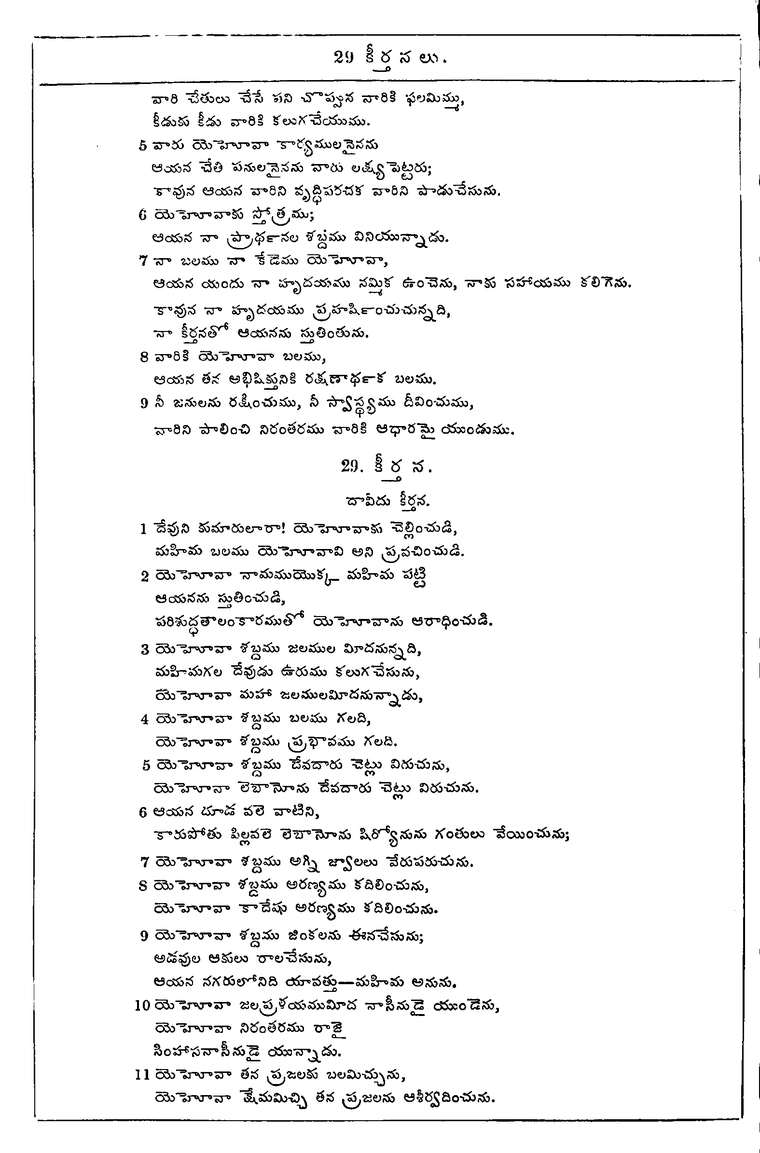 29 కీర్తనలు.
వారి చేతులు చేసే పని చొప్పున వారికి ఫలమిమ్ము,
కీడుకు కీడు వారికి కలుగచేయుము.
5 వారు యెహోవా కార్యములనైనను
ఆయన చేతి పనులనైనను వారు లక్ష్యపెట్టరు;
కావున ఆయన వారిని వృద్ధిపరచక వారిని పాడుచేసును.
6 యెహోవాకు స్తోత్రము;
ఆయన నా ప్రార్థనల శబ్దము వినియున్నాడు.
7 నా బలము నా కేడెము యెహోవా,
ఆయన యందు నా హృదయము నమ్మిక ఉంచెను, నాకు సహాయము కలిగెను.
కావున నా హృదయము ప్రహర్షించుచున్నది,
నా కీర్తనతో ఆయనను స్తుతింతును.
8 వారికి యెహోవా బలము,
ఆయన తన అభిషిక్తునికి రక్షణార్థక బలము.
9 నీ జనులను రక్షించుము, నీ స్వాస్థ్యము దీవించుము,
వారిని పాలించి నిరంతరము వారికి ఆధారమై యుండుము.
29. కీర్తన.
దావీదు కీర్తన.
1 దేవుని కుమారులారా! యెహోవాకు చెల్లించుడి,
మహిమ బలము యెహోవావి అని ప్రవచించుడి.
2 యెహోవా నామముయొక్క మహిమ పట్టి
ఆయనను స్తుతించుడి,
పరిశుద్ధతాలంకారముతో యెహోవాను ఆరాధించుడి.
3 యెహోవా శబ్దము జలముల మీదనున్నది,
మహిమగల దేవుడు ఉరుము కలుగచేసును,
యెహోవా మహా జలములమీదనున్నాడు,
4 యెహోవా శబ్దము బలము గలది,
యెహోవా శబ్దము ప్రభావము గలది.
5 యెహోవా శబ్దము దేవదారు చెట్లు విరుచును,
యెహోవా లెబానోను దేవదారు చెట్లు విరుచును.
6 ఆయన దూడ వలె వాటిని,
కారుపోతు పిల్లవలె లెబానోను షిర్యోనును గంతులు వేయించును;
7 యెహోవా శబ్దము అగ్ని జ్వాలలు వేరుపరుచును.
8 యెహోవా శబ్దము అరణ్యము కదిలించును,
యెహోవా కాదేషు అరణ్యము కదిలించును.
9 యెహోవా శబ్దము జింకలను ఈనచేసును;
అడవుల ఆకులు రాలచేసును,
ఆయన నగరులోనిది యావత్తు—మహిమ అనును.
10 యెహోవా జలప్రళయముమీద నాసీనుడై యుండెను,
యెహోవా నిరంతరము రాజై
సింహాసనాసీనుడై యున్నాడు.
11 యెహోవా తన ప్రజలకు బలమిచ్చును,
యెహోవా క్షేమమిచ్చి తన ప్రజలను ఆశీర్వదించును.